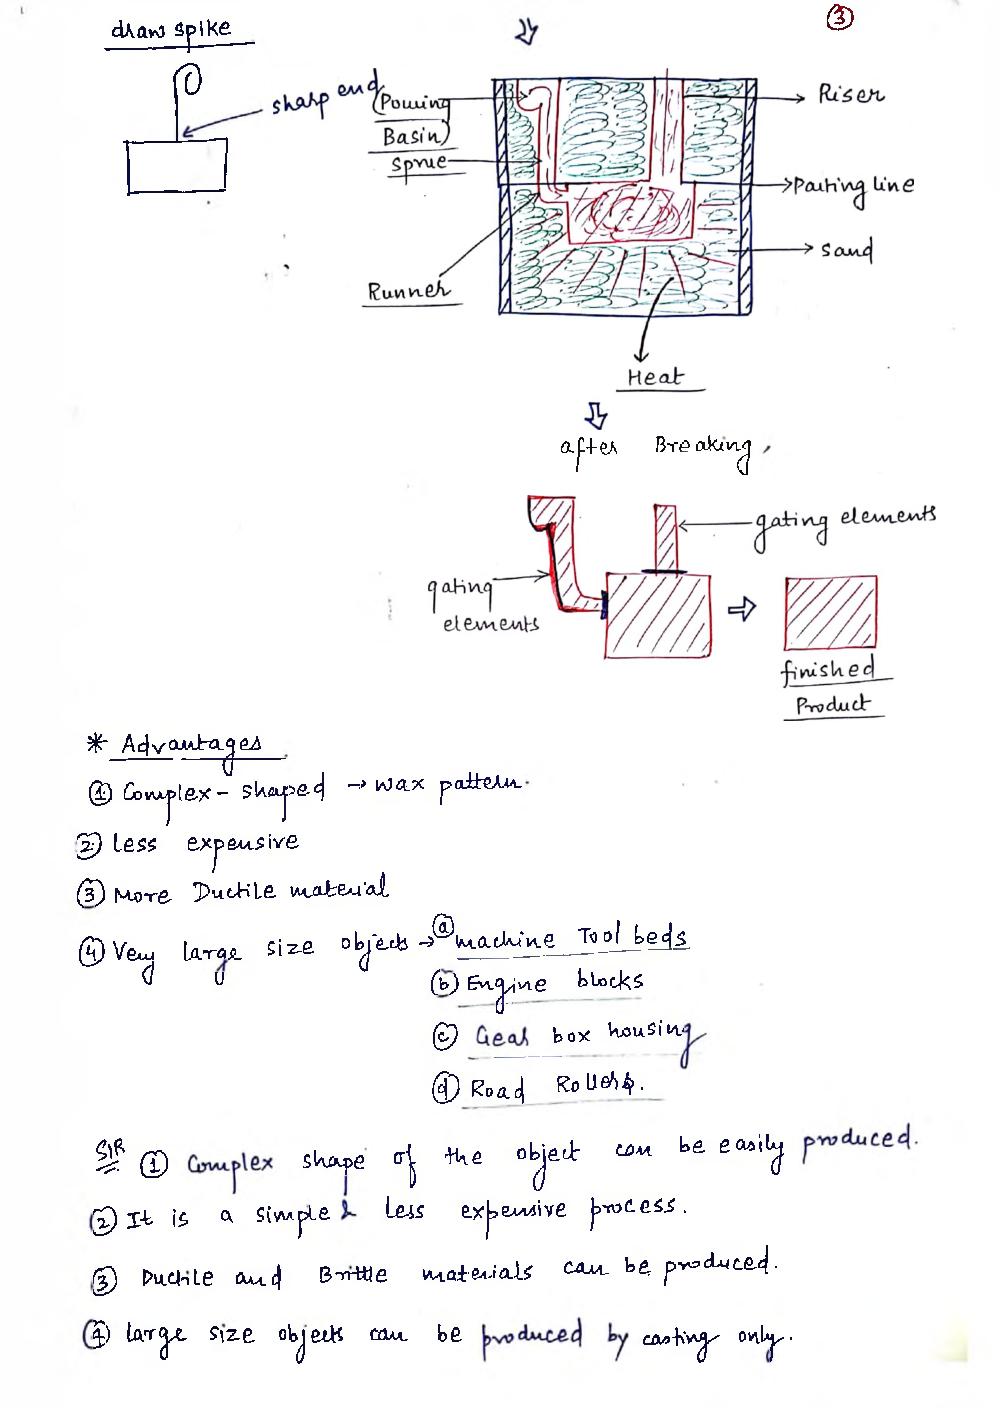 3
draw spike
sharp end
(Pouring
Basin)
Sprue
Runner
Riser
Parting line
Sand
Heat
after Breaking,
gating elements
gating
elements
finished
Product
* Advantages
① Complex-shaped → wax pattern.
② Less expensive
③ More Ductile material
④ Very large size objects → ⓐ machine Tool beds
ⓑ Engine blocks
ⓒ Gear box housing
ⓓ Road Rollers.
SIR ① Complex shape of the object can be easily produced.
② It is a simple & less expensive process.
③ Ductile and Brittle materials can be produced.
④ large size objects can be produced by casting only.